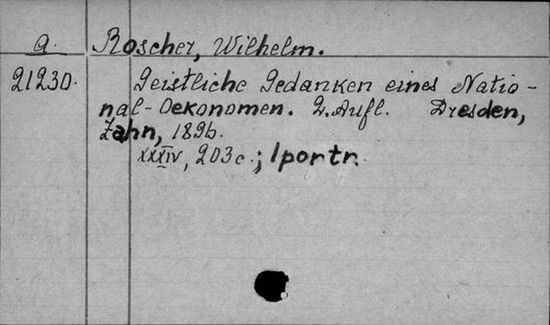 a. Roscher, Wilhelm.
21230. Geistliche Gedanken eines Natio-
nal-Oekonomen. 2. Aufl. Dresden,
Zahn, 1896.
XXXIV, 203c.; 1portr.